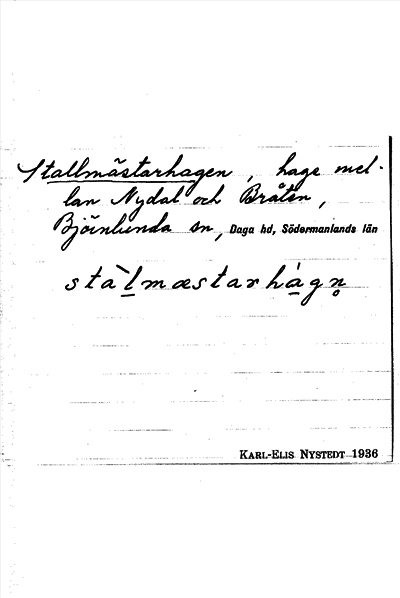 Stallmästarhagen, hage mel-
lan Nydal och Bråten,
Björnlunda sn, Daga hd, Södermanlands län
stàl̲mæstarhá̲gn̥
KARL-ELIS NYSTEDT 1936